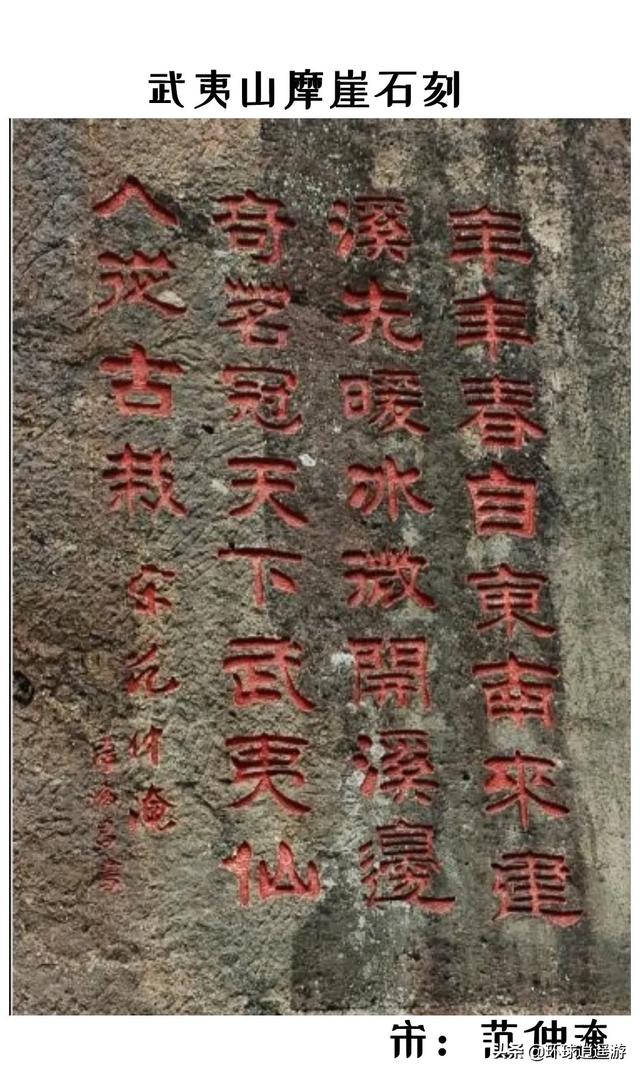 武夷山摩崖石刻
年年春自東南來建
溪先暖冰微開溪邊
奇茗冠天下武夷仙
人從古栽
宋范仲淹
宋：范仲淹
头条 @环球逍遥游